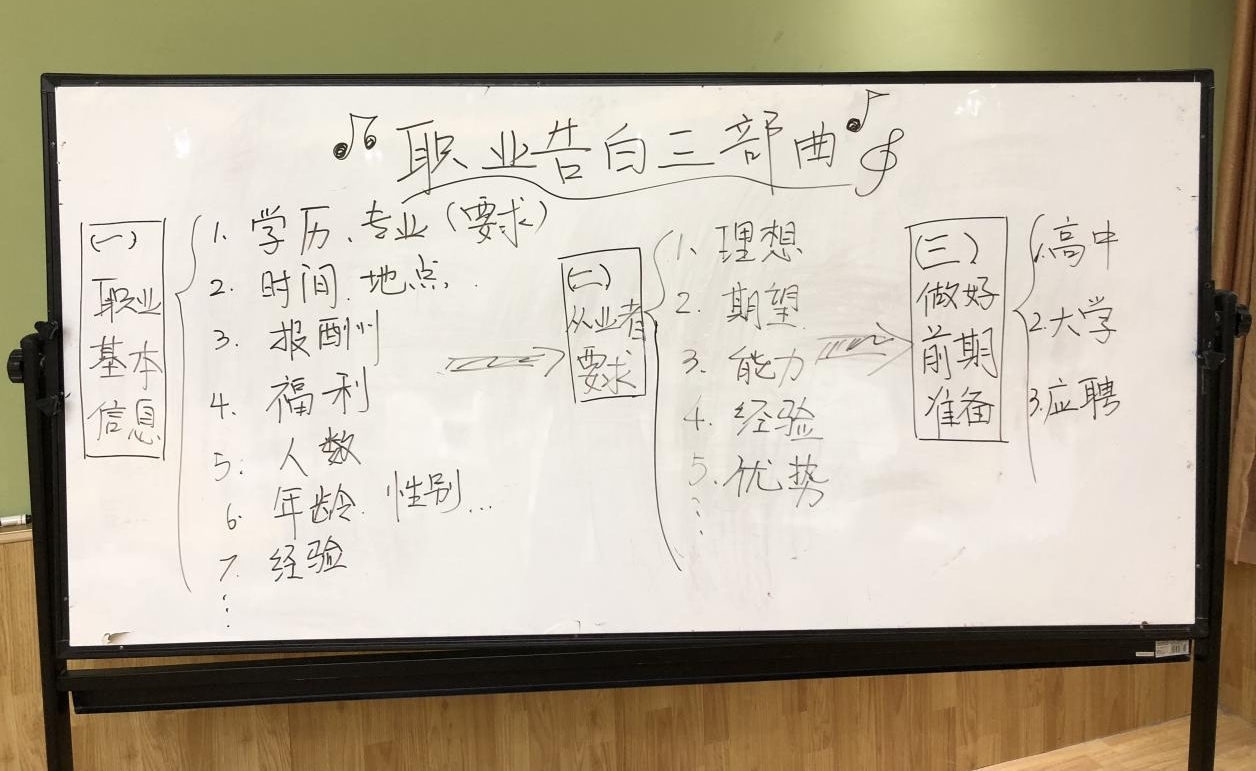 职业告白三部曲
(一)
职业
基本
信息
1. 学历、专业(要求)
2. 时间、地点.
3. 报酬
4. 福利
5. 人数
6. 年龄、性别...
7. 经验
⋮
(二)
从业者
要求
1. 理想
2. 期望
3. 能力
4. 经验
5. 优势
⋮
(三)
做好
前期
准备
1.高中
2.大学
3.应聘